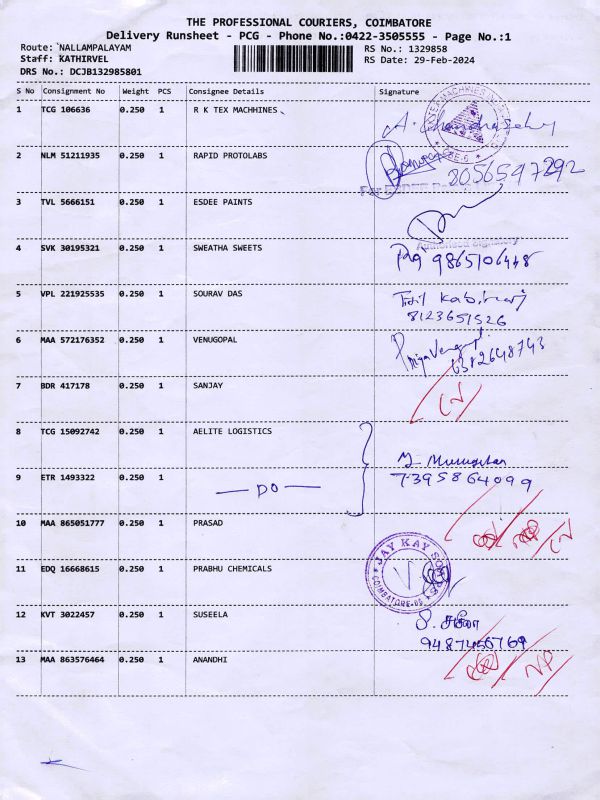 THE PROFESSIONAL COURIERS, COIMBATORE
Delivery Runsheet - PCG - Phone No.:0422-3505555 - Page No.:1
Route: `NALLAMPALAYAM RS No.: 1329858
Staff: KATHIRVEL RS Date: 29-Feb-2024
DRS No.: DCJB132985801
S No Consignment No Weight PCS Consignee Details Signature
1 TCG 106636 0.250 1 R K TEX MACHHINES
2 NLM 51211935 0.250 1 RAPID PROTOLABS
8056547292
3 TVL 5666151 0.250 1 ESDEE PAINTS
Authorised Signatory
4 SVK 30195321 0.250 1 SWEATHA SWEETS
9865106448
5 VPL 221925535 0.250 1 SOURAV DAS
8123651526
6 MAA 572176352 0.250 1 VENUGOPAL
6382648743
7 BDR 417178 0.250 1 SANJAY
8 TCG 15092742 0.250 1 AELITE LOGISTICS
9 ETR 1493322 0.250 1 — DO —
7395864099
10 MAA 865051777 0.250 1 PRASAD
11 EDQ 16668615 0.250 1 PRABHU CHEMICALS
JAY KAY
COIMBATORE
12 KVT 3022457 0.250 1 SUSEELA
13 MAA 863576464 0.250 1 ANANDHI